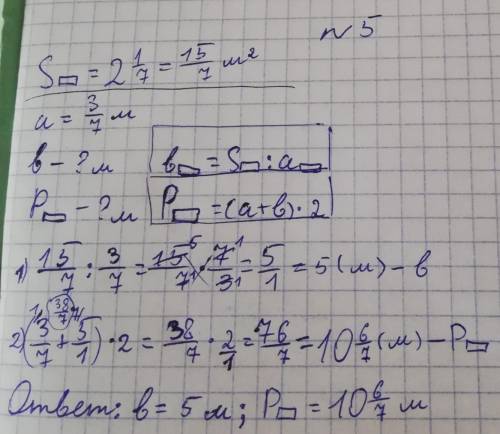 № 5
S▭ = 2 1/7 = 15/7 м²
a = 3/7 м
в - ? м
в▭ = S▭ : a▭
P▭ - ? м
P▭ = (a+в) · 2
1) 15/7 : 3/7 = 15⁵/7¹ · 7¹/3¹ = 5/1 = 5 (м) - в
38/7
2) (3/7 + 5/1) · 2 = 38/7 · 2/1 = 76/7 = 10 6/7 (м) - P▭
Ответ: в = 5 м; P▭ = 10 6/7 м